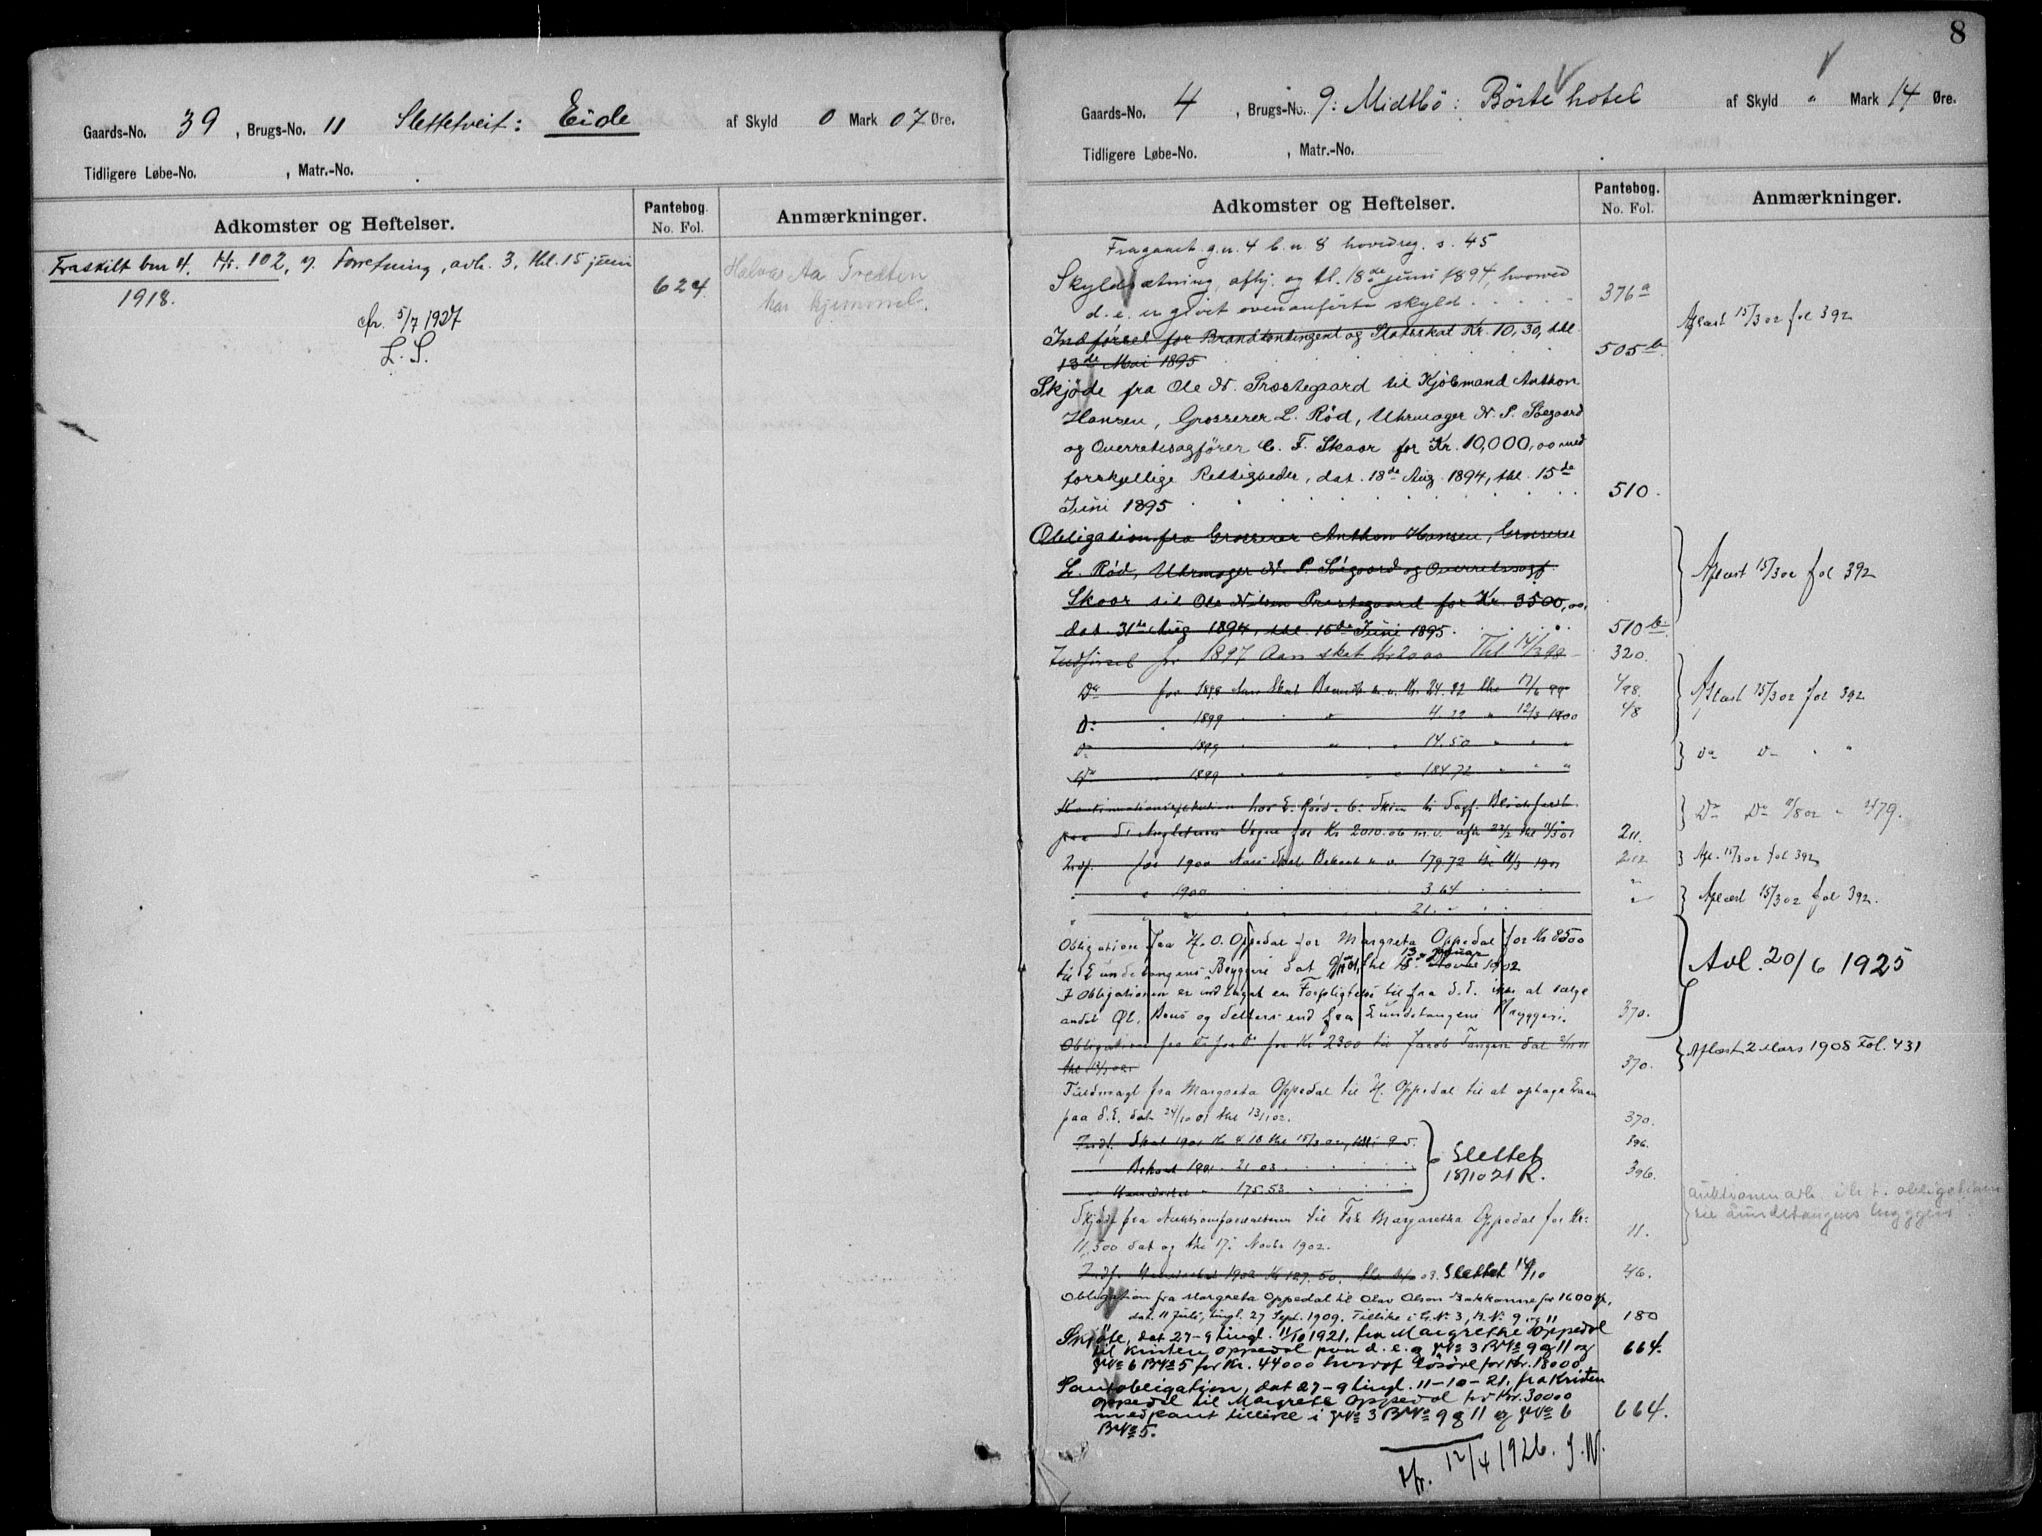 Gaards-No. 39, Brugs-No. 11 Slettetveit: Eide af Skyld 0 Mark 07 Øre.
Tidligere Løbe-No. , Matr.-No.
Adkomster og Heftelser.
Pantebog.
No. Fol.
Anmærkninger.
Fraskilt bnr 4. Nr. 102, v. Forretning, avh. 3, thl. 15 juni
1918.
624
Halvor Aa. Tresten
har hjemmel.
cfr. 5/7 1927
L. S.
8
Gaards-No. 4, Brugs-No. 9: Midtbö: Börte hotel af Skyld " Mark 14 Øre.
Tidligere Løbe-No. , Matr.-No.
Adkomster og Heftelser.
Pantebog.
No. Fol.
Anmærkninger.
Fragaaet g.n. 4 b.n. 8 hovedreg. s. 45
Skyldsætning, afhj. og tl. 18de juni 1894, hvorved
d. e. er givet ovenanførte skyld
376a
Indførsel for Brandkontingent og Statsskat Kr. 10,30, thl
13de Mai 1895
505b
Aflæst 15/3 02 fol 392
Skjøde fra Ole N. Præstegaard til Kjøbmand Anthon
Hansen, Grosserer L. Rød, Uhrmager N. P. Søegaard
og Overretssagfører C. F. Skaar for Kr. 10,000,00 med
forskjellige Rettigheder, dat. 18de Aug. 1894, thl. 15de
Juni 1895
510.
Obligation fra Grosserer Anthon Hansen, Grosserer
L. Rød, Uhrmager N. P. Søgaard og Overretssagf.
Skaar til Ole Nilsen Præstegaard for Kr. 3500,00,
dat. 31te Aug 1894, thl. 15de Juni 1895.
510b
Aflæst 15/3 02 fol 392
Indførsel for 1897 Aars skat Kr 20.00 Thl 14/3 98
320.
Do for 1898 Aars Skat Brandk m.v. Kr 24.92 thl 17/6 99
4/98.
Aflæst 15/3 02 fol 392
Do 1899 " 4.22 " 12/3 1900
48
Do 1899 " 14.50 " " "
Do Do " "
Do 1899 " 184.72 " " "
paa Vegne for Kr 2010.06 m.v.
211.
Do Do 11/8 02 " 579.
Indf. for 1900 Aars Skat m v 179.72 thl 11/3 1901
212
Afl. 15/3 02 fol 392
" " 1900 3.64
"
Aflæst 15/3 02 fol 392.
" 21.
Obligation fra H. O. Oppedal for Margreta Oppedal for Kr 8500
til Lundetangens Bryggeri dat thl 13 januar 1902
I Obligationen er indtaget en Forpligtelse til fra d. E. ikke at sælge
andet Øl, Brus og Selters end fra Lundetangens Bryggeri.
370.
Avl. 20/6 1925
Obligation fra Do for Do for Kr 2300 til Jacob Tangen dat
thl 13/1 02
370.
Aflæst 2 Mars 1908 Fol. 431
Fuldmagt fra Margreta Oppedal til H. Oppedal til at optage Laan
paa d. E. dat 24/10 01 thl 13/1 02.
370.
Indf. Skat 1901 Kr 4.10 thl 15/3 02
396.
" 1901 " 21.03
Slettet
18/10 21 R.
396.
" " 175.53
Skjøde fra Auktionsforvalteren til Frk Margaretha Oppedal for Kr:
11,500 dat og thl 17. Novbr 1902.
11.
auktionen avh. i h. t. obligationen
til Lundetangens bryggeri.
Indf. 1902 Kr 127.50. 03. Slettet 14/10
46.
Obligation fra Margreta Oppedal til Olav Olson Bakkanne for 1600 Kr,
dat. 11 Juli, tingl. 27 Sept. 1909. Tillike i G.No 3, B.No 9 og 11
180
Skjöte, dat 27-9 tingl. 11/10 1921, fra Margrethe Oppedal
til Kristen Oppedal paa d. e. og gNo 3 BNo 9 og 11 og
gNo 6 BNo 5 for Kr. 44000 hvorav lösöre for Kr. 18000
664.
Pantobligation, dat 27-9 tingl. 11-10-21, fra Kristen
Oppedal til Margrete Oppedal for Kr. 30000
med pant tillike i gNo 3 BNo 9 og 11 og gNo 6
BNo 5.
664.
cfr. 12/4 1926. J. N.